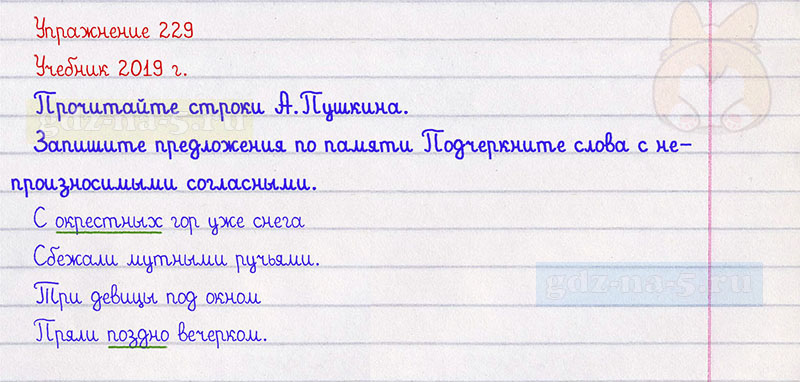 Упражнение 229
Учебник 2019 г.
Прочитайте строки А.Пушкина.
Запишите предложения по памяти Подчеркните слова с не-
произносимыми согласными.
С окрестных гор уже снега
Сбежали мутными ручьями.
Три девицы под окном
Пряли поздно вечерком.
gdz-na-5.ru
gdz-na-5.ru